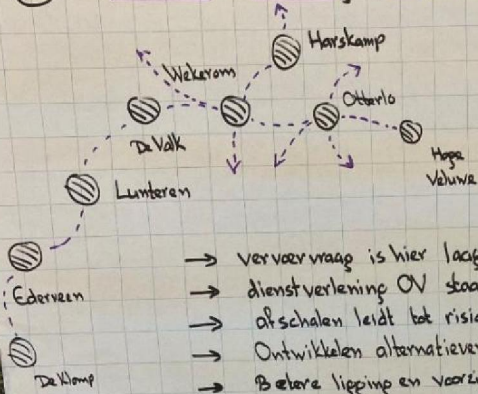 Harskamp
Wekerom
Otterlo
De Valk
Hoge
Veluwe
Lunteren
Ederveen
De Klomp
→ vervoervraag is hier laag
→ dienstverlening OV staa
→ afschalen leidt tot risi
→ Ontwikkelen alternatieve
→ Betere ligging en voorzi